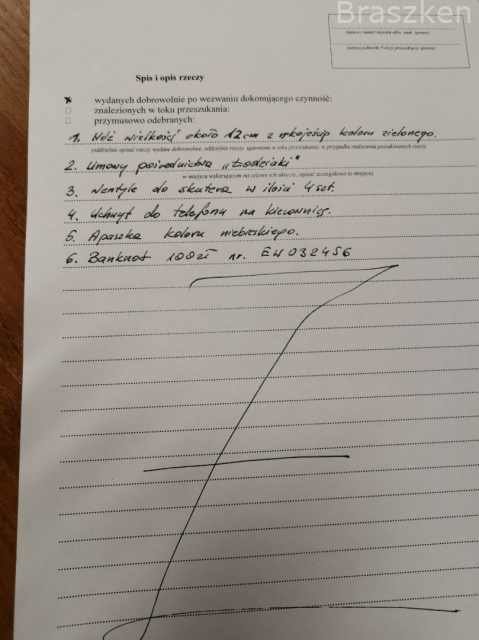 Braszken
Spis i opis rzeczy
wydanych dobrowolnie po wezwaniu dokonującego czynność:
znalezionych w toku przeszukania:
przymusowo odebranych:
1. Nóż wielkości około 12cm z rękojeścią koloru zielonego.
2. Umowy pośrednictwa „Łodziaki"
3. Wentyle do skutera w ilości 4 szt.
4. Uchwyt do telefonu na kierownicę.
5. Apaszka koloru niebieskiego.
6. Banknot 100zł nr. EW032456